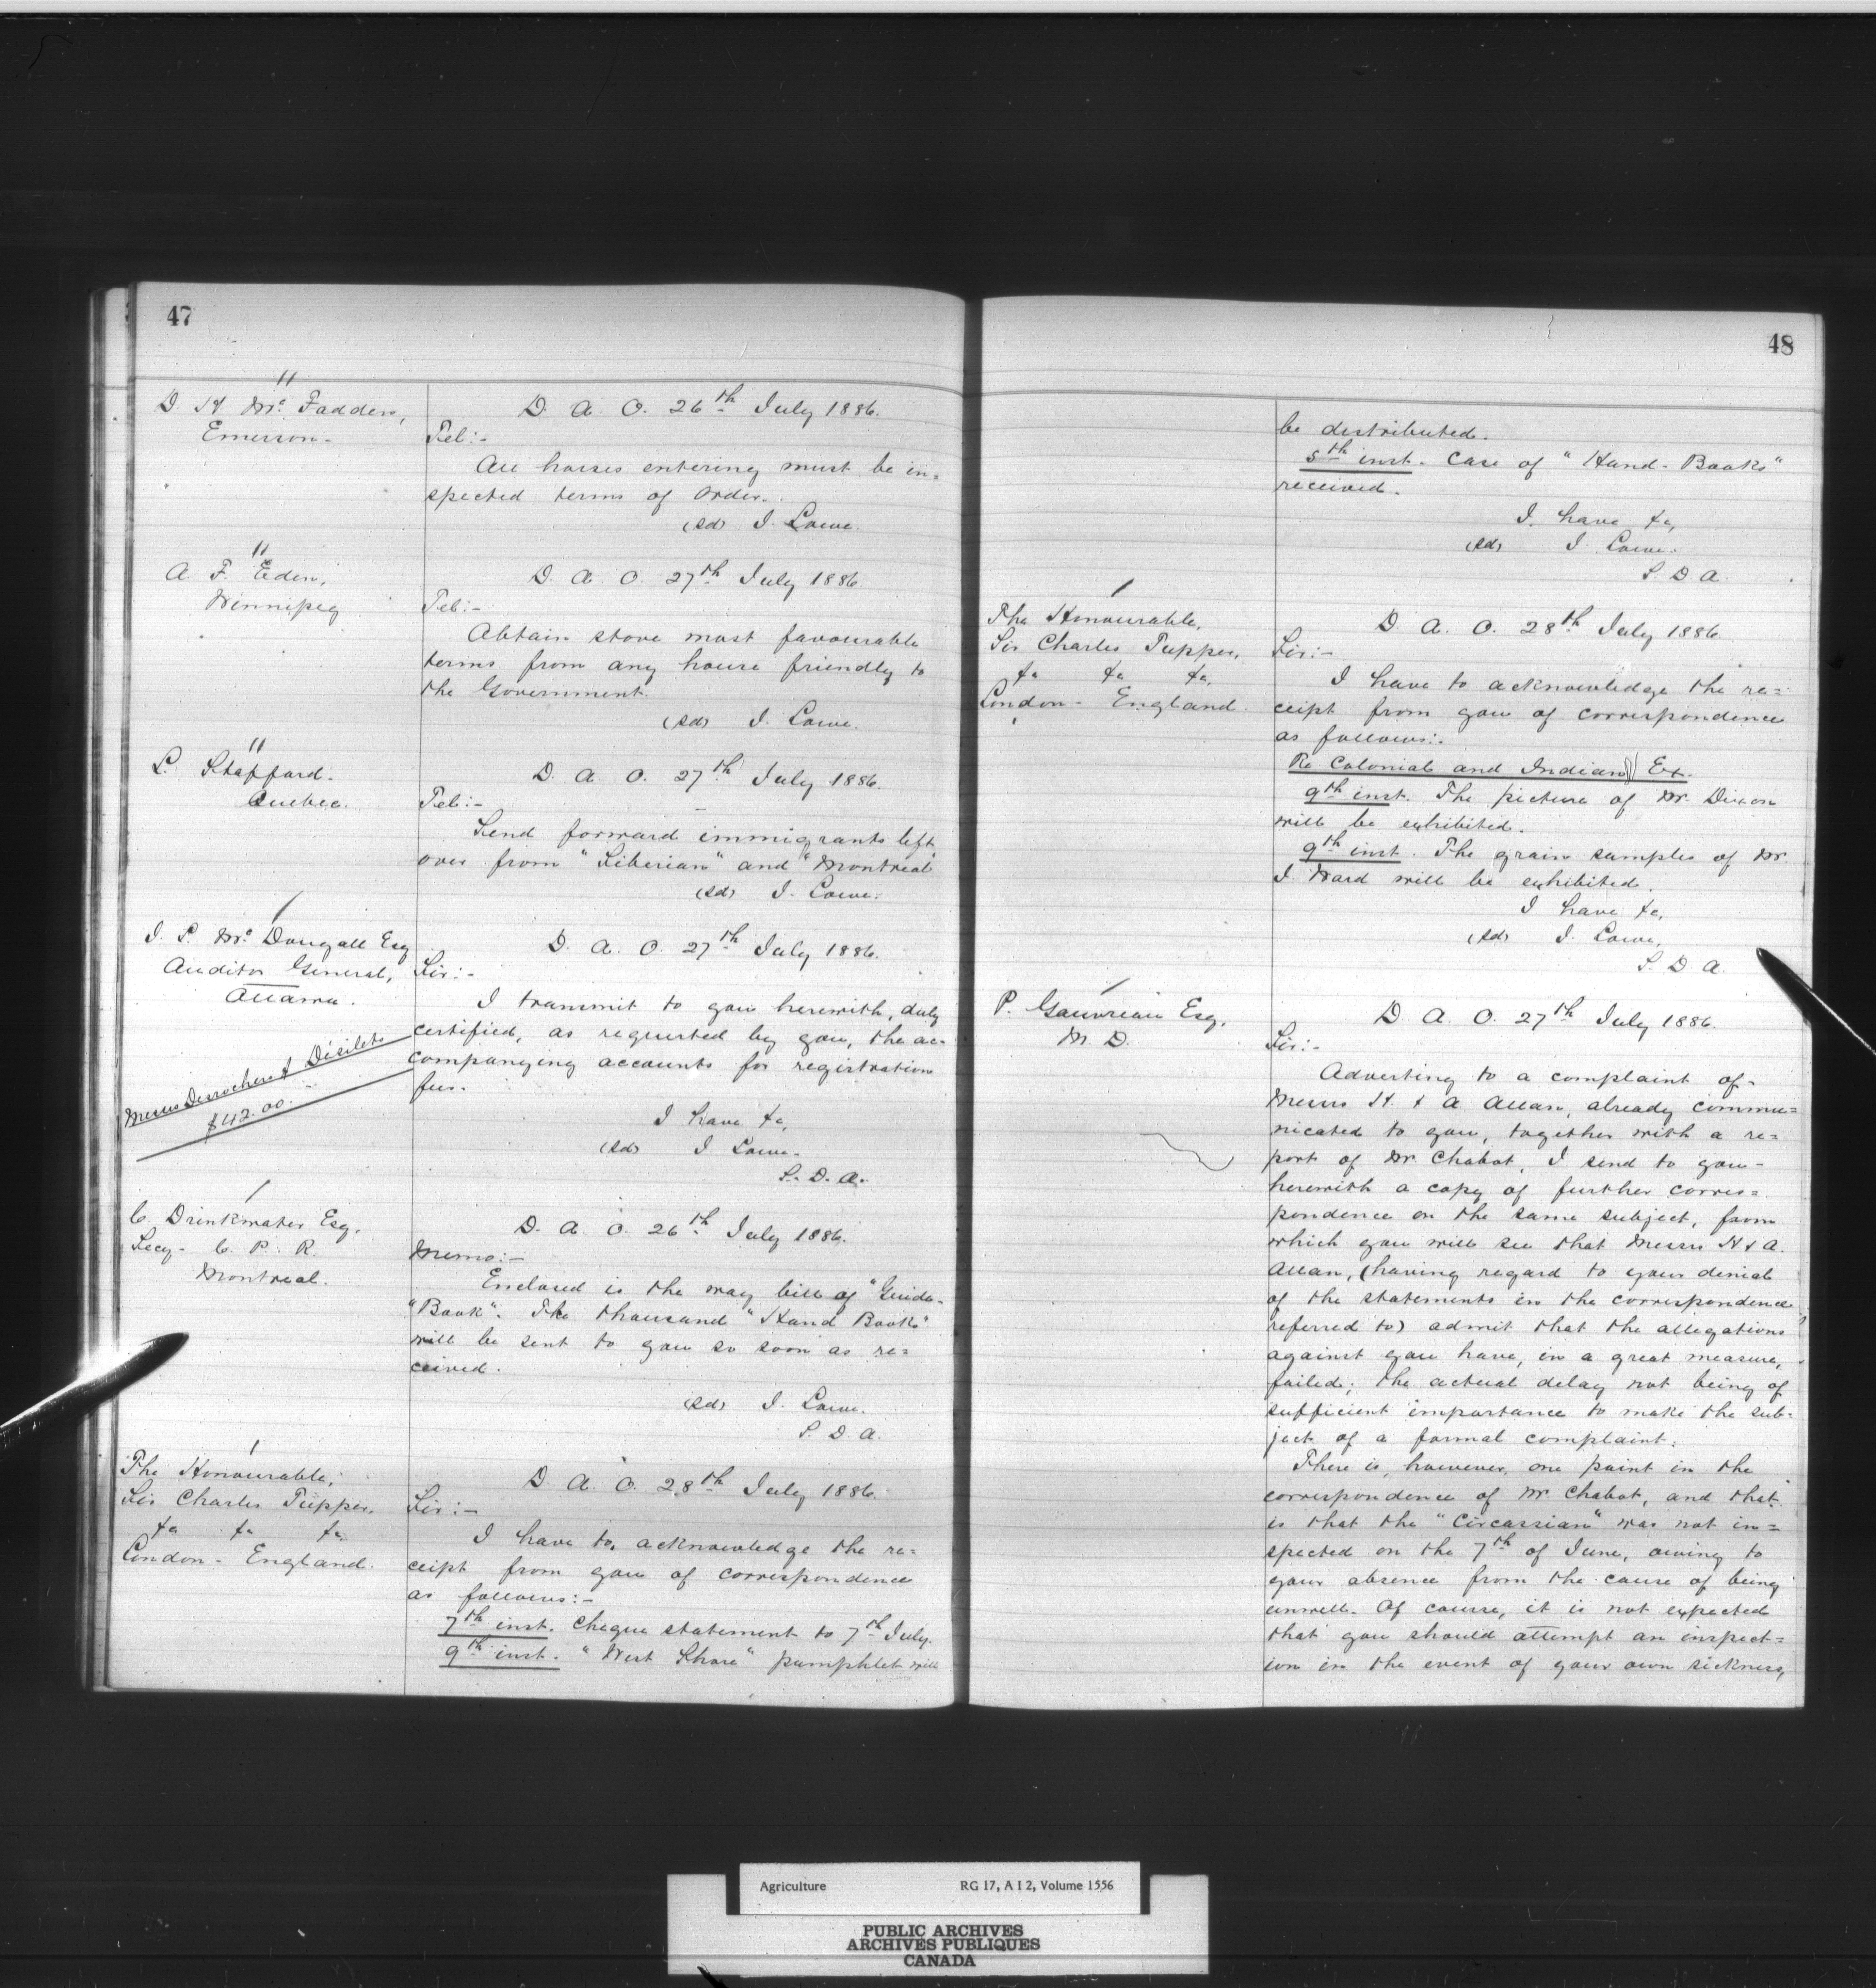 47
"
D. H. Mc. Fadden,
Emerson-
D. A. O. 26th July 1886.
Tel:-
All horses entering must be in=
spected terms of order.
(sd) J. Lowe.
"
A. F. Eden,
Winnipeg
D. A. O. 27th July 1886.
Tel:-
Obtain stove most favourable
terms from any house friendly to
the Government.
(sd) J. Lowe.
"
L. Stafford.
Quebec.
D. A. O. 27th July 1886.
Tel:-
Send forward immigrants left
over from "Siberian" and "Montreal"
(sd) J. Lowe.
J. L. Mc. Dougall Esq
Auditor General,
Ottawa.
Messrs Desrochers & Désilets
$42.00.
D. A. O. 27th July 1886.
Sir:-
I transmit to you herewith, duly
certified, as requested by you, the ac=
companying accounts for registration
fees.
I have &c,
(sd) J Lowe.
S. D. A.
C. Drinkwater Esq.
Secy- C. P. R.
Montreal.
D. A. O. 26th July 1886.
Memo:-
Enclosed is the way bill of "Guide-
"Book". The thousand "Hand Books"
will be sent to you so soon as re=
ceived.
(sd) J. Lowe.
S. D. A.
The Honourable,
Sir Charles Tupper,
&c &c &c
London - England.
D. A. O. 28th July 1886.
Sir:-
I have to acknowledge the re=
ceipt from you of correspondence
as follows:-
7th inst. Cheque statement to 7th July.
9th inst. "West Shore" pamphlet will
48
be distributed.
5th inst. Case of "Hand-Books"
received.
I have &c,
(sd) J. Lowe.
S. D. A.
The Honourable,
Sir Charles Tupper,
&c &c &c,
London - England.
D. A. O. 28th July 1886.
Sir:-
I have to acknowledge the re=
ceipt from you of correspondence
as follows:-
Re Colonial and Indian Ex.
9th inst. The picture of Mr. Dixon
will be exhibited.
9th inst. The grain samples of Mr.
J. Ward will be exhibited.
I have &c,
(sd) J. Lowe,
S. D. A.
P. Gauvreau Esq,
M. D.
D. A. O. 27th July 1886.
Sir:-
Adverting to a complaint of-
Messrs H. & A Allan, already commu=
nicated to you, together with a re=
port of Mr. Chabot, I send to you-
herewith a copy of further corres=
pondence on the same subject, from
which you will see that Messrs H & A.
Allan, (having regard to your denial
of the statements in the correspondence
referred to) admit that the allegations
against you have, in a great measure,
failed; the actual delay not being of
sufficient importance to make the sub=
ject of a formal complaint.
There is, however, one point in the
correspondence of Mr. Chabot, and that
is that the "Circassian" was not in=
spected on the 7th of June, owing to
your absence from the cause of being
unwell. Of course, it is not expected
that you should attempt an inspect=
ion in the event of your own sickness,
Agriculture RG 17, A I 2, Volume 1556
PUBLIC ARCHIVES
ARCHIVES PUBLIQUES
CANADA